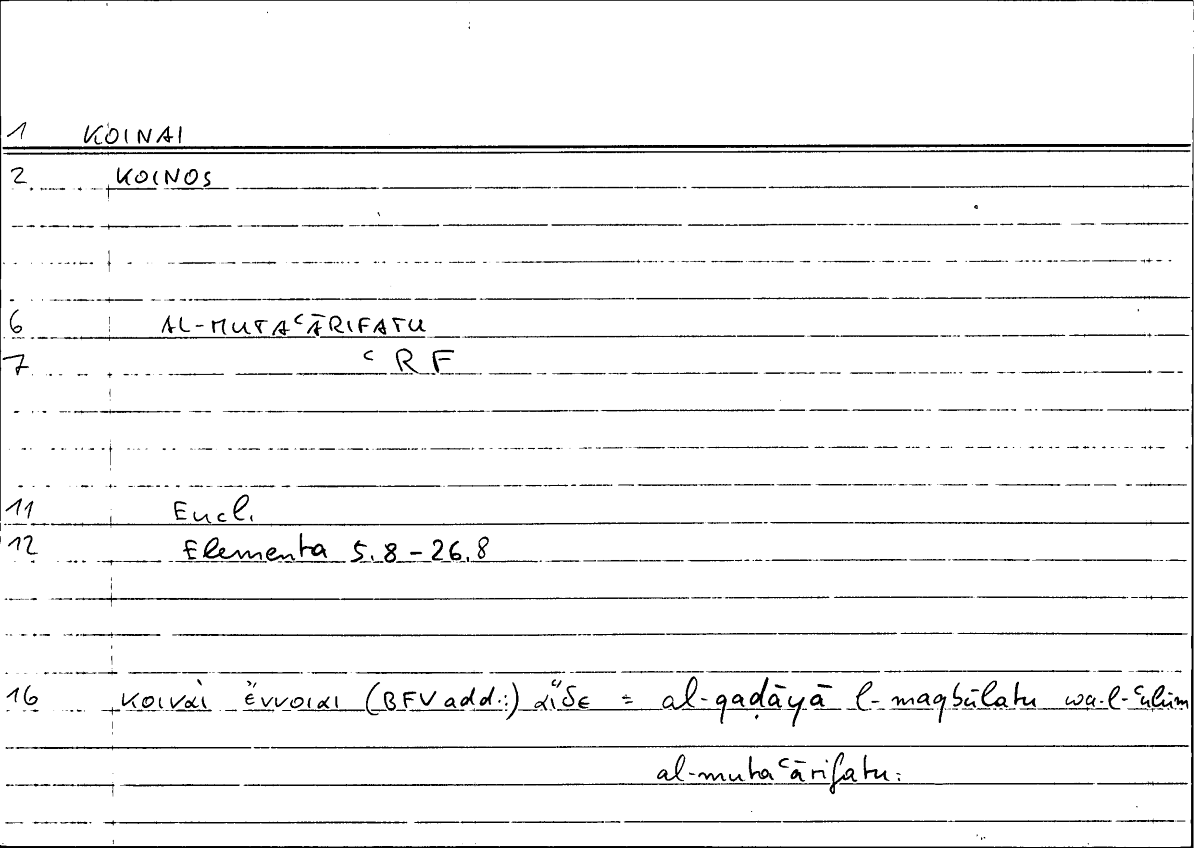 1 KOINAI
2 KOINOS
6 AL-MUTAʿĀRIFATU
7 ʿRF
11 Eucl.
12 Elementa 5.8-26.8
16 κοιναὶ ἔννοιαι (BFV add.:) αἵδε = al-qaḍāyā l-maqbūlatu wa-l-ʿulūm
al-mutaʿārifatu: